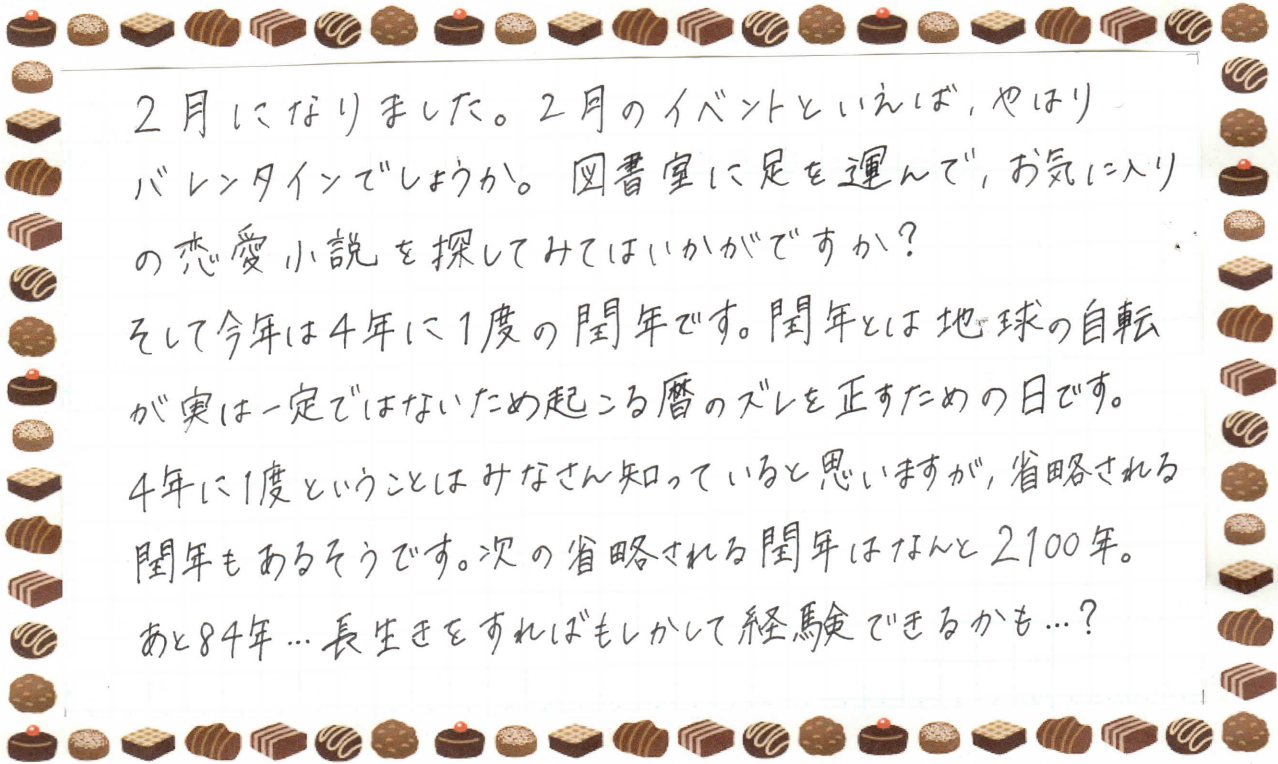 2月になりました。2月のイベントといえば、やはり
バレンタインでしょうか。図書室に足を運んで、お気に入り
の恋愛小説を探してみてはいかがですか？
そして今年は4年に1度の閏年です。閏年とは地球の自転
が実は一定ではないため起こる暦のズレを正すための日です。
4年に1度ということはみなさん知っていると思いますが、省略される
閏年もあるそうです。次の省略される閏年はなんと2100年。
あと84年…長生きをすればもしかして経験できるかも…？